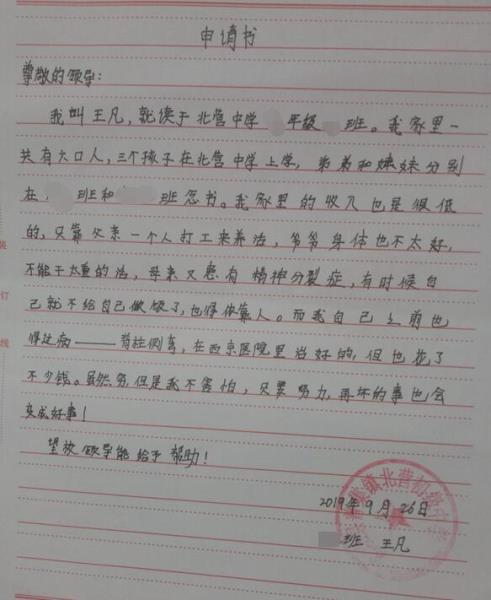 申请书
尊敬的领导:
我叫王凡,就读于北营中学 年级 班。我家里一
共有六口人,三个孩子在北营中学上学,弟弟和妹妹分别
在 班和 班念书。我家里的收入也是很低
的,只靠父亲一个人打工来养活,爷爷身体也不太好,
不能干太重的活,母亲又患有精神分裂症,有时候自
己就不给自己做饭了,也得依靠人。而我自己之前也
得过病——脊柱侧弯,在西京医院里治好的,但也花了
不少钱。虽然穷,但是我不害怕,只要努力,再坏的事也会
变成好事!
望校领导能给予帮助!
2019年9月26日
班 王凡
装
订
线
镇北营初级中学